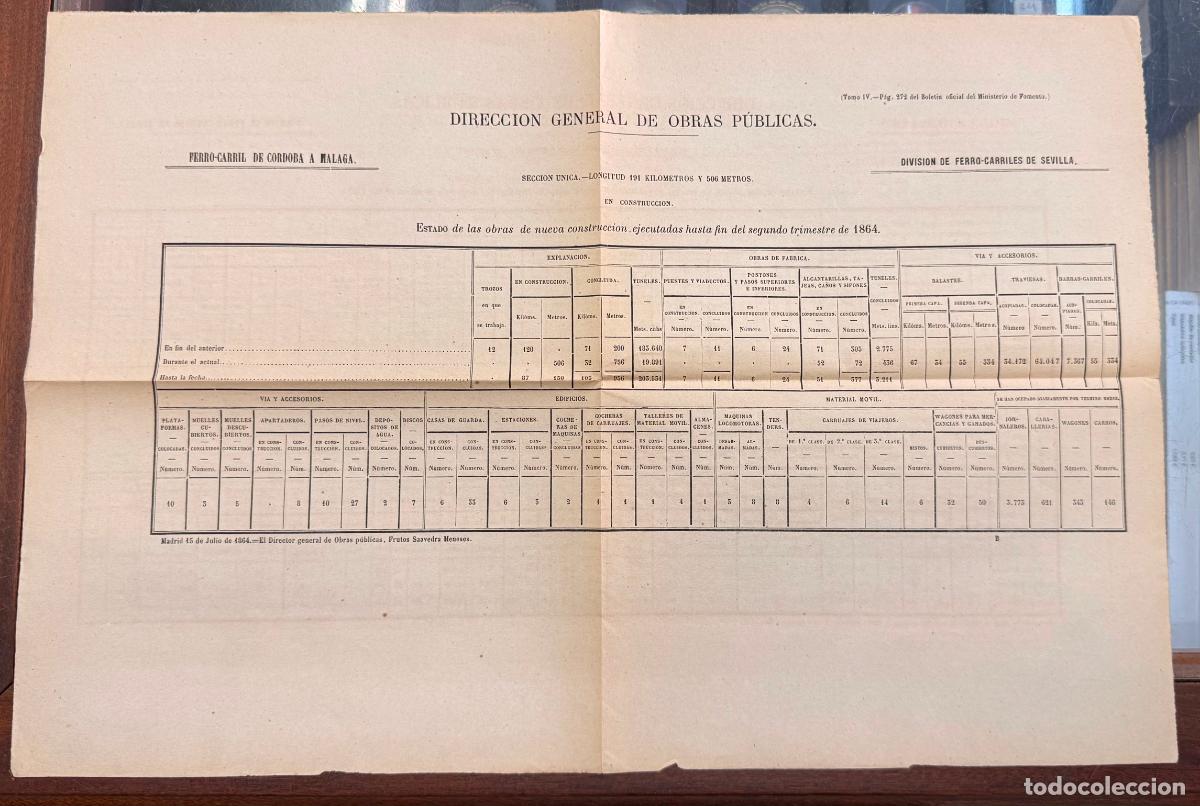 (Tomo IV.—Pág. 272 del Boletin oficial del Ministerio de Fomento.)
DIRECCION GENERAL DE OBRAS PÚBLICAS.
FERRO-CARRIL DE CORDOBA A MALAGA.
DIVISION DE FERRO-CARRILES DE SEVILLA.
SECCION UNICA.—LONGITUD 191 KILOMETROS Y 506 METROS.
EN CONSTRUCCION.
ESTADO de las obras de nueva construccion ejecutadas hasta fin del segundo trimestre de 1864.
EXPLANACION. OBRAS DE FABRICA. VIA Y ACCESORIOS.
TROZOS en que se trabaja. EN CONSTRUCCION. CONCLUIDA. TUNELES. PUENTES Y VIADUCTOS. PONTONES Y PASOS SUPERIORES E INFERIORES. ALCANTARILLAS, TAJEAS, CAÑOS Y SIFONES TUNELES. BALASTRE. TRAVIESAS. BARRAS-CARRILES.
PRIMERA CAPA. SEGUNDA CAPA. ACOPIADAS. COLOCADAS. ACOPIADAS. COLOCADAS.
Kilóms. Metros. Kilóms. Metros. Mets. cubs EN CONSTRUCCION CONCLUIDOS EN CONSTRUCCION CONCLUIDOS EN CONSTRUCCION CONCLUIDOS CONCLUIDOS
Número. Número. Número. Número. Número. Número. Mets. lins. Kilóms. Metros. Kilóms. Metros. Número Número. Núm. Kils. Mets.
En fin del anterior 12 120 . 71 200 183.640 7 11 6 24 71 305 2.775
Durante el actual . 506 32 756 19.891 52 72 436 67 34 55 334 34.472 64.047 7.367 55 334
Hasta la fecha . 87 550 103 956 203.531 7 11 6 24 51 377 3.211
VIA Y ACCESORIOS. EDIFICIOS. MATERIAL MOVIL. SE HAN OCUPADO DIARIAMENTE POR TERMINO MEDIO.
PLATAFORMAS. MUELLES CUBIERTOS. MUELLES DESCUBIERTOS. APARTADEROS. PASOS DE NIVEL. DEPOSITOS DE AGUA. DISCOS CASAS DE GUARDA. ESTACIONES. COCHERAS DE MAQUINAS COCHERAS DE CARRUAJES. TALLERES DE MATERIAL MOVIL. ALMACENES. MAQUINAS LOCOMOTORAS. TENDERS. CARRUAJES DE VIAJEROS. WAGONES PARA MERCANCIAS Y GANADOS. JORNALEROS. CABALLERIAS. WAGONES CARROS.
COLOCADAS. CONCLUIDOS CONCLUIDOS EN CONSTRUCCION CONCLUIDOS. EN CONSTRUCCION. CONCLUIDOS. COLOCADOS COLOCADOS. EN CONSTRUCCION. CONCLUIDAS. EN CONSTRUCCION. CONCLUIDAS. CONCLUIDOS EN CONSTRUCCION. CONCLUIDAS. EN CONSTRUCCION. CONCLUIDOS. CONCLUIDOS. DE 1.ª CLASE. DE 2.ª CLASE. DE 3.ª CLASE. MISTOS. CUBIERTOS. DESCUBIERTOS.
Número. Número. Número. Número. Núm. Núm. Núm. Número. Núm. Número. Núm. Número. Núm. Número. Núm. Núm. Núm. Núm. Núm. Núm. Núm. Núm. Número. Número. Número. Número. Número. Núm. Número. Número. Número Número
10 3 5 . 8 10 27 2 7 6 33 6 3 2 1 1 1 4 1 3 8 8 4 6 14 6 32 50 3.773 621 343 146
Madrid 15 de Julio de 1864.—El Director general de Obras públicas, Frutos Saavedra Meneses.
B
todocoleccion